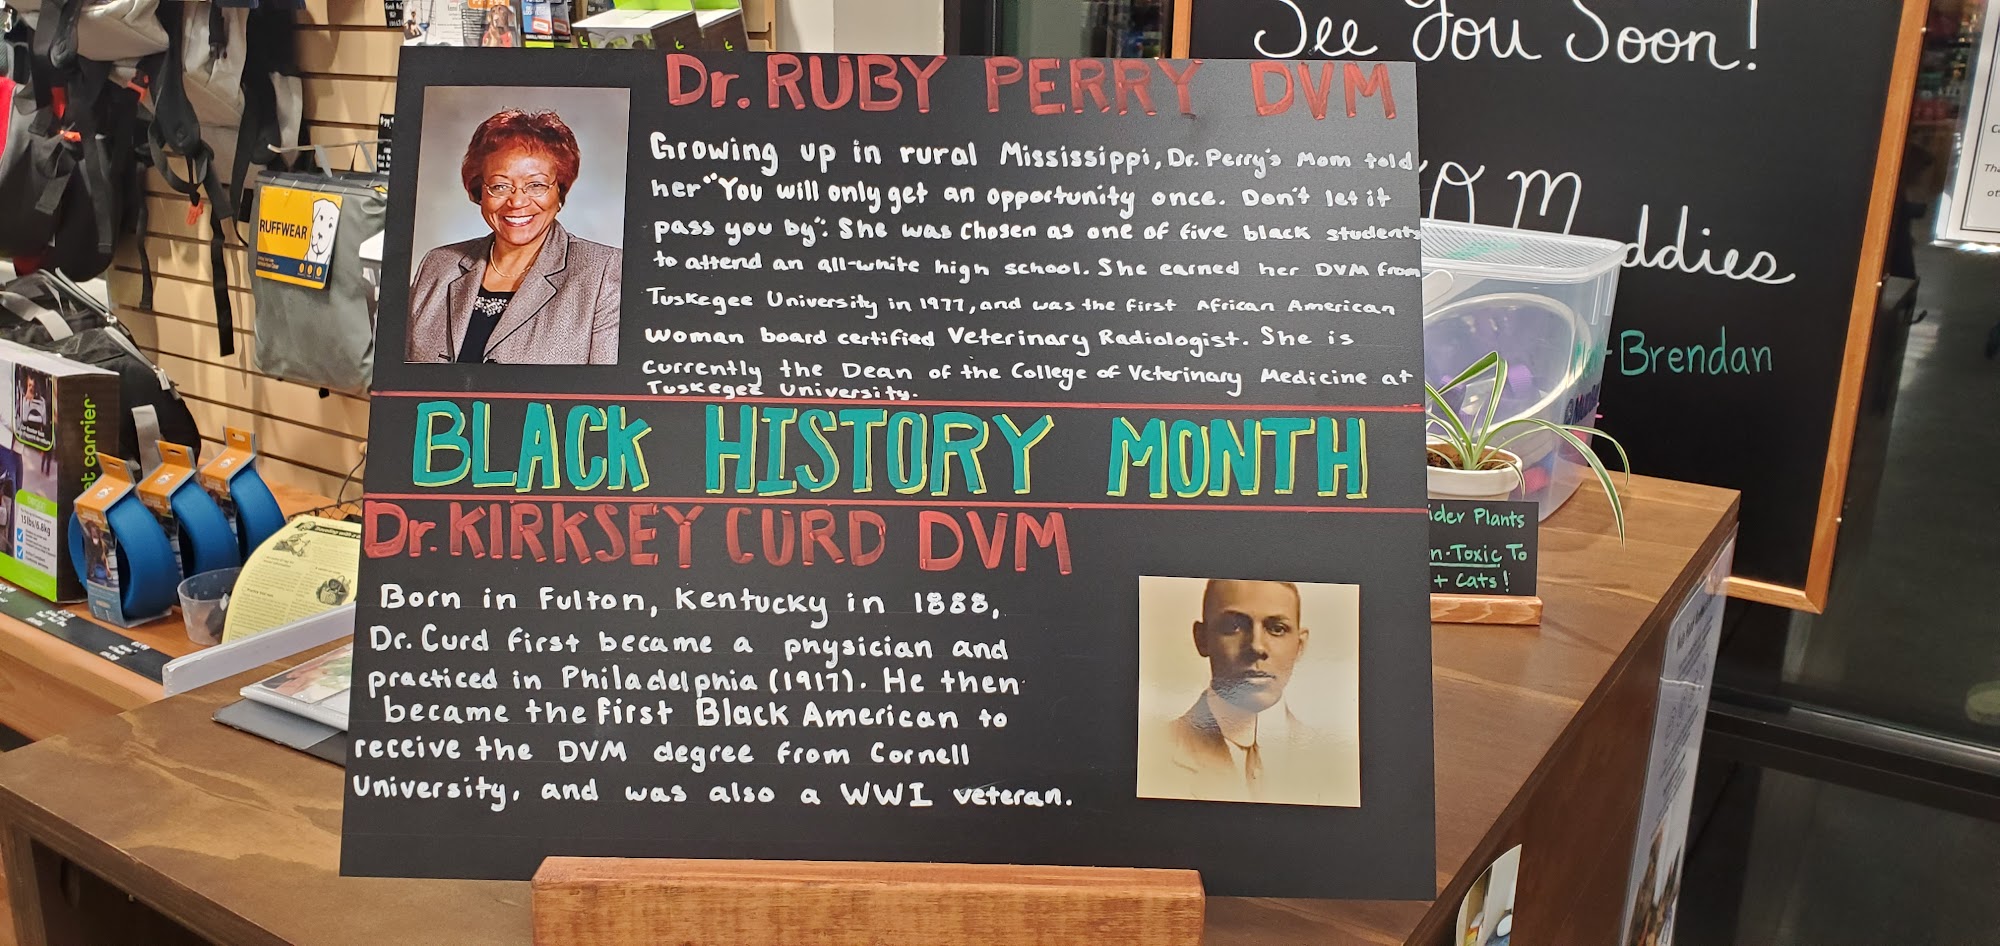 See You Soon!
Dr. RUBY PERRY DVM
Growing up in rural Mississippi, Dr. Perry's Mom told
her "You will only get an opportunity once. Don't let it
pass you by". She was chosen as one of five black students
to attend an all-white high school. She earned her DVM from
Tuskegee University in 1977, and was the first African American
woman board certified Veterinary Radiologist. She is
currently the Dean of the College of Veterinary Medicine at
Tuskegee University.
BLACK HISTORY MONTH
Dr. KIRKSEY CURD DVM
Born in Fulton, Kentucky in 1888,
Dr. Curd first became a physician and
practiced in Philadelphia (1917). He then
became the first Black American to
receive the DVM degree from Cornell
University, and was also a WWI veteran.
RUFFWEAR
et carrier
15lbs/6.8kg
ddies
-Brendan
ider Plants
n-Toxic To
+ Cats!